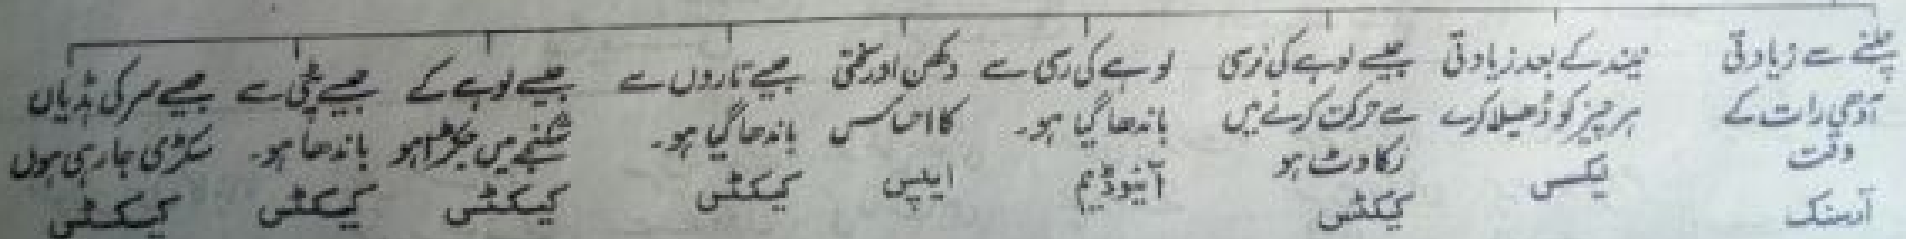 چلنے سے زیادتی
آدھی رات کے
وقت
آرسنک
نیند کے بعد زیادتی
ہر چیز کو ڈھیلا کرے
لیکسس
جیسے لوہے کی
سے حرکت کرنے میں
رکاوٹ ہو
کیکٹس
لوہے کی رسی سے
باندھا گیا ہو۔
آئیوڈیم
دکھن اور سختی
کا احساس
ایپس
جیسے تاروں سے
باندھا گیا ہو۔
کیکٹس
جیسے لوہے کے
شکنجے میں جکڑا ہو
کیکٹس
جیسے پٹی سے
باندھا ہو۔
کیکٹس
جیسے سر کی ہڈیاں
سکڑی جا رہی ہوں
کیکٹس